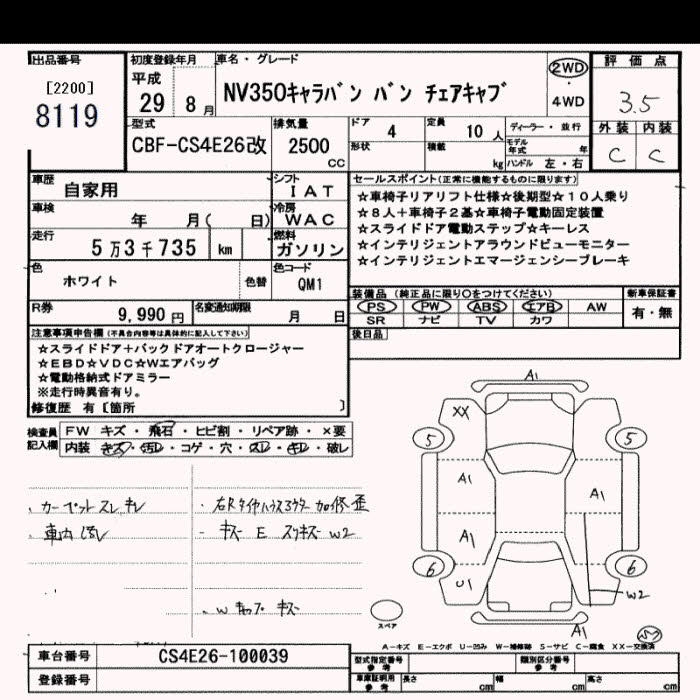 出品番号
[2200]
8119
初度登録年月
平成
29 8 月
車名・グレード
NV350キャラバン バン チェアキャブ
2WD
・
4WD
評価点
3.5
外装 内装
C C
型式
CBF-CS4E26改
排気量
2500
CC
ドア 4
定員 10 人
形状
積載 kg
ディーラー・並行
モデル年式 年
ハンドル 左・右
車歴
自家用
シフト
IAT
車検
年 月( 日)
冷房
WAC
走行
5万3千735 km
燃料
ガソリン
色
ホワイト
色替
色コード
QM1
セールスポイント(正常に機能するものに限ります)
☆車椅子リアリフト仕様☆後期型☆10人乗り
☆8人+車椅子2基☆車椅子電動固定装置
☆スライドドア電動ステップ☆キーレス
☆インテリジェントアラウンドビューモニター
☆インテリジェントエマージェンシーブレーキ
R券
9,990 円
名変通知期限
月 日
装備品 (純正品に限り○をつけてください)
PS PW ABS エアB AW
SR ナビ TV カワ
新車保証書
有・無
後日品
注意事項申告欄(不具合内容等は具体的に記入して下さい)
☆スライドドア+バックドアオートクロージャー
☆EBD☆VDC☆Wエアバッグ
☆電動格納式ドアミラー
※走行時異音有り。
修復歴 有 [箇所 ]
検査員記入欄
FW キズ・飛石・ヒビ割・リペア跡・×要
内装 キズ・汚レ・コゲ・穴・スレ・キレ・破レ
・カーペットスレ キレ
・車内汚レ
・右Rタイヤハウスアウター加修歪
・キズ E スリキズ W2
・Wキャブ キズ
A1
XX
5
5
A1
A1
A1
6
6
U1
W2
A1
スペア
A-キズ E-エクボ U-凹み W-補修跡 S-サビ C-腐食 XX-交換済
車台番号
CS4E26-100039
登録番号
型式指定番号 参考
類別区分番号 参考
車庫証明用 参考
長さ cm
幅 cm
高さ cm